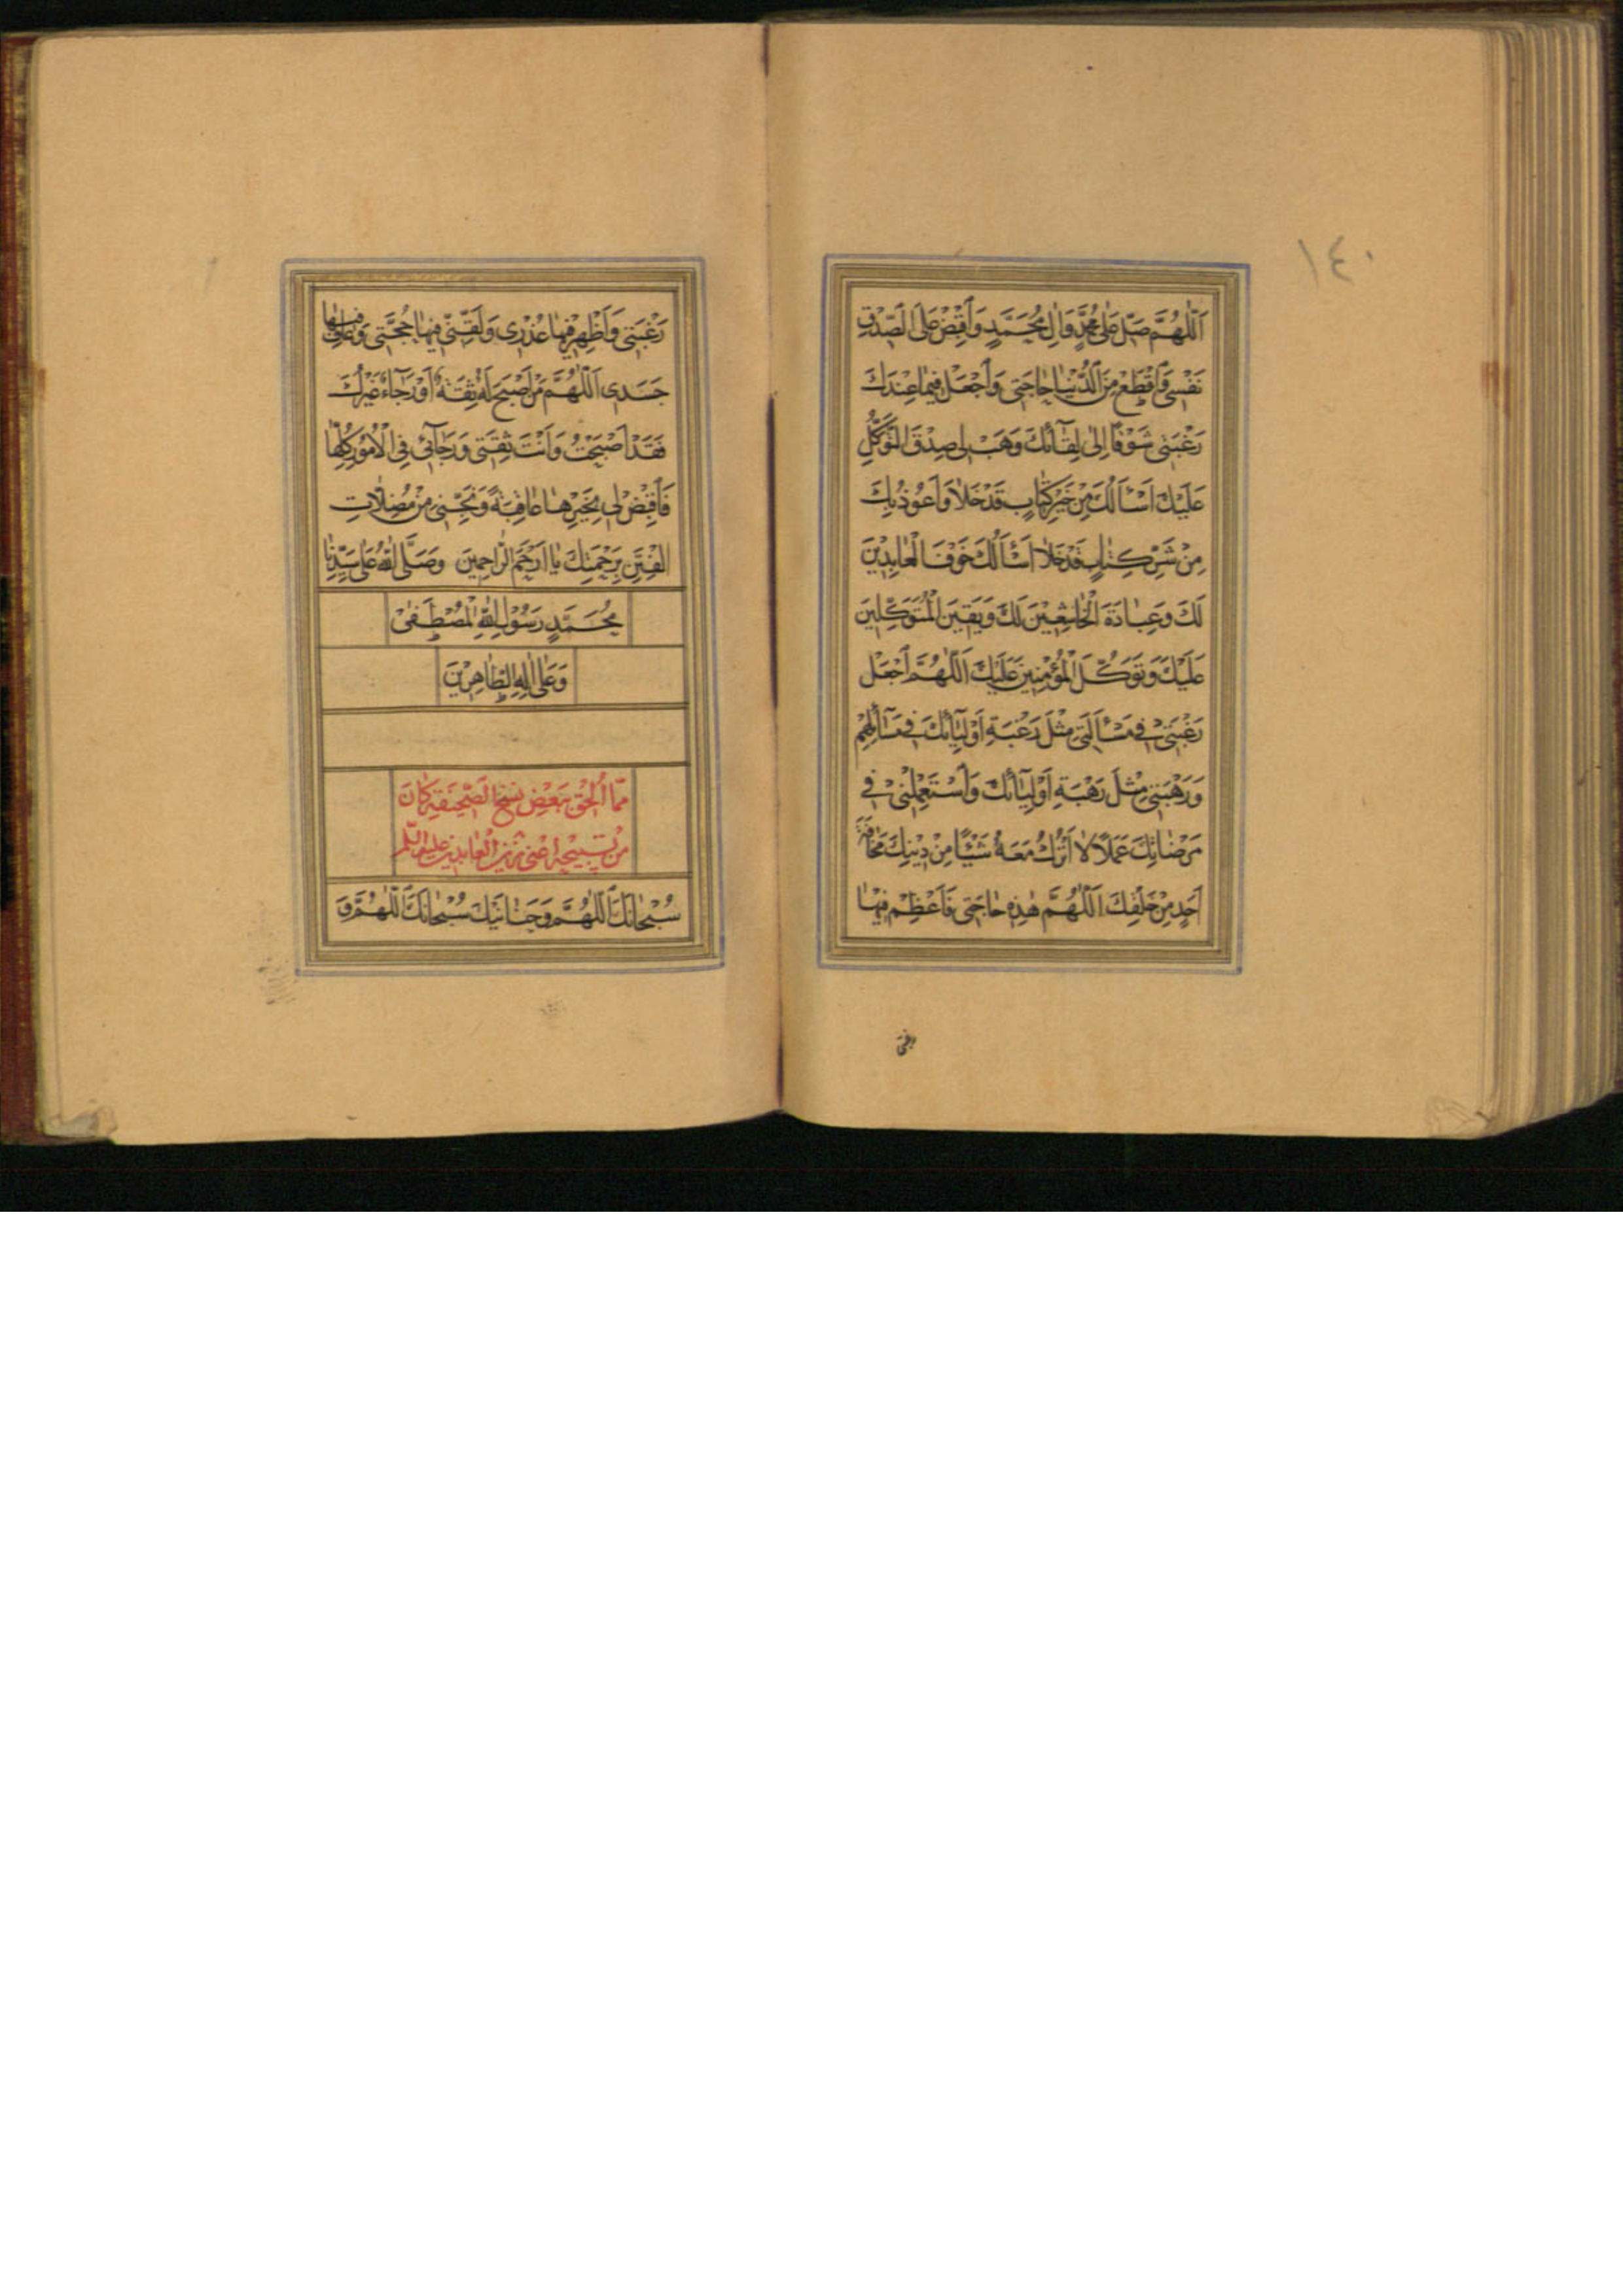 ١٤٠
اَللّٰهُمَّ صَلِّ عَلٰى مُحَمَّدٍ وَاٰلِ مُحَمَّدٍ وَاَقْبِضْ عَلَى الصِّدْقِ
نَفْسِى وَاَقْطَعْ مِنَ الدُّنْيٰا حٰاجَتِى وَاَجْعَلْ فِيمٰا عِنْدَكَ
رَغْبَتِى شَوْقًا اِلٰى لِقٰٓائِكَ وَهَبْ لِى صِدْقَ التَّوَكُّلِ
عَلَيْكَ اَسْاَلُكَ مِنْ خَيْرِ كِتٰابٍ قَدْ خَلٰا وَاَعُوذُ بِكَ
مِنْ شَرِّ كِتٰابٍ قَدْ خَلٰا اَسْاَلُكَ خَوْفَ الْعٰابِدِيْنَ
لَكَ وَعِبٰادَةَ الْخٰاشِعِيْنَ لَكَ وَيَقِيْنَ الْمُتَوَكِّلِيْنَ
عَلَيْكَ وَتَوَكُّلَ الْمُؤْمِنِيْنَ عَلَيْكَ اَللّٰهُمَّ اَجْعَلْ
رَغْبَتِىْ فِى مَسْاَلَتِى مِثْلَ رَغْبَةِ اَوْلِيٰٓائِكَ فِى مَسٰٓائِلِهِمْ
وَرَهْبَتِىْ مِثْلَ رَهْبَةِ اَوْلِيٰٓائِكَ وَاَسْتَعْمِلْنِىْ فِى
مَرْضٰاتِكَ عَمَلًا لٰا اَتْرُكُ مَعَهُ شَيْئًا مِنْ دِيْنِكَ مَخٰافَةَ
اَحَدٍ مِنْ خَلْقِكَ اَللّٰهُمَّ هٰذِهِ حٰاجَتِى فَاَعْظِمْ فِيْهٰا
رغبتى
رَغْبَتِى وَاَظْهِرْ فِيْهٰا عُذْرِى وَلَقِّنِّى فِيْهٰا حُجَّتِى وَعٰافِ فِيْهٰا
جَسَدِى اَللّٰهُمَّ مَنْ اَصْبَحَ لَهُ ثِقَةٌ اَوْ رَجٰٓاءٌ غَيْرُكَ
فَقَدْ اَصْبَحْتُ وَاَنْتَ ثِقَتِى وَرَجٰٓائِى فِى الْاُمُورِ كُلِّهٰا
فَاَقْضِ لِى بِخَيْرِهٰا عٰاقِبَةً وَنَجِّنِى مِنْ مُضِلّٰاتِ
الْفِتَنِ بِرَحْمَتِكَ يٰا اَرْحَمَ الرّٰاحِمِيْنَ وَصَلَّى اللّٰهُ عَلٰى سَيِّدِنٰا
مُحَمَّدٍ رَسُوْلِ اللّٰهِ الْمُصْطَفٰىْ
وَعَلٰى اٰلِهِ الطّٰاهِرِيْنَ
مِمّٰا اُلْحِقَ بِبَعْضِ نُسَخِ الصَّحِيْفَةِ كٰانَ
مِنْ تَسْبِيْحِهِ اَعْنِى زَيْنَ الْعٰابِدِيْنَ عَلَيْهِ السَّلٰامُ
سُبْحٰانَكَ اللّٰهُمَّ وَحَنٰانَيْكَ سُبْحٰانَكَ اللّٰهُمَّ وَ